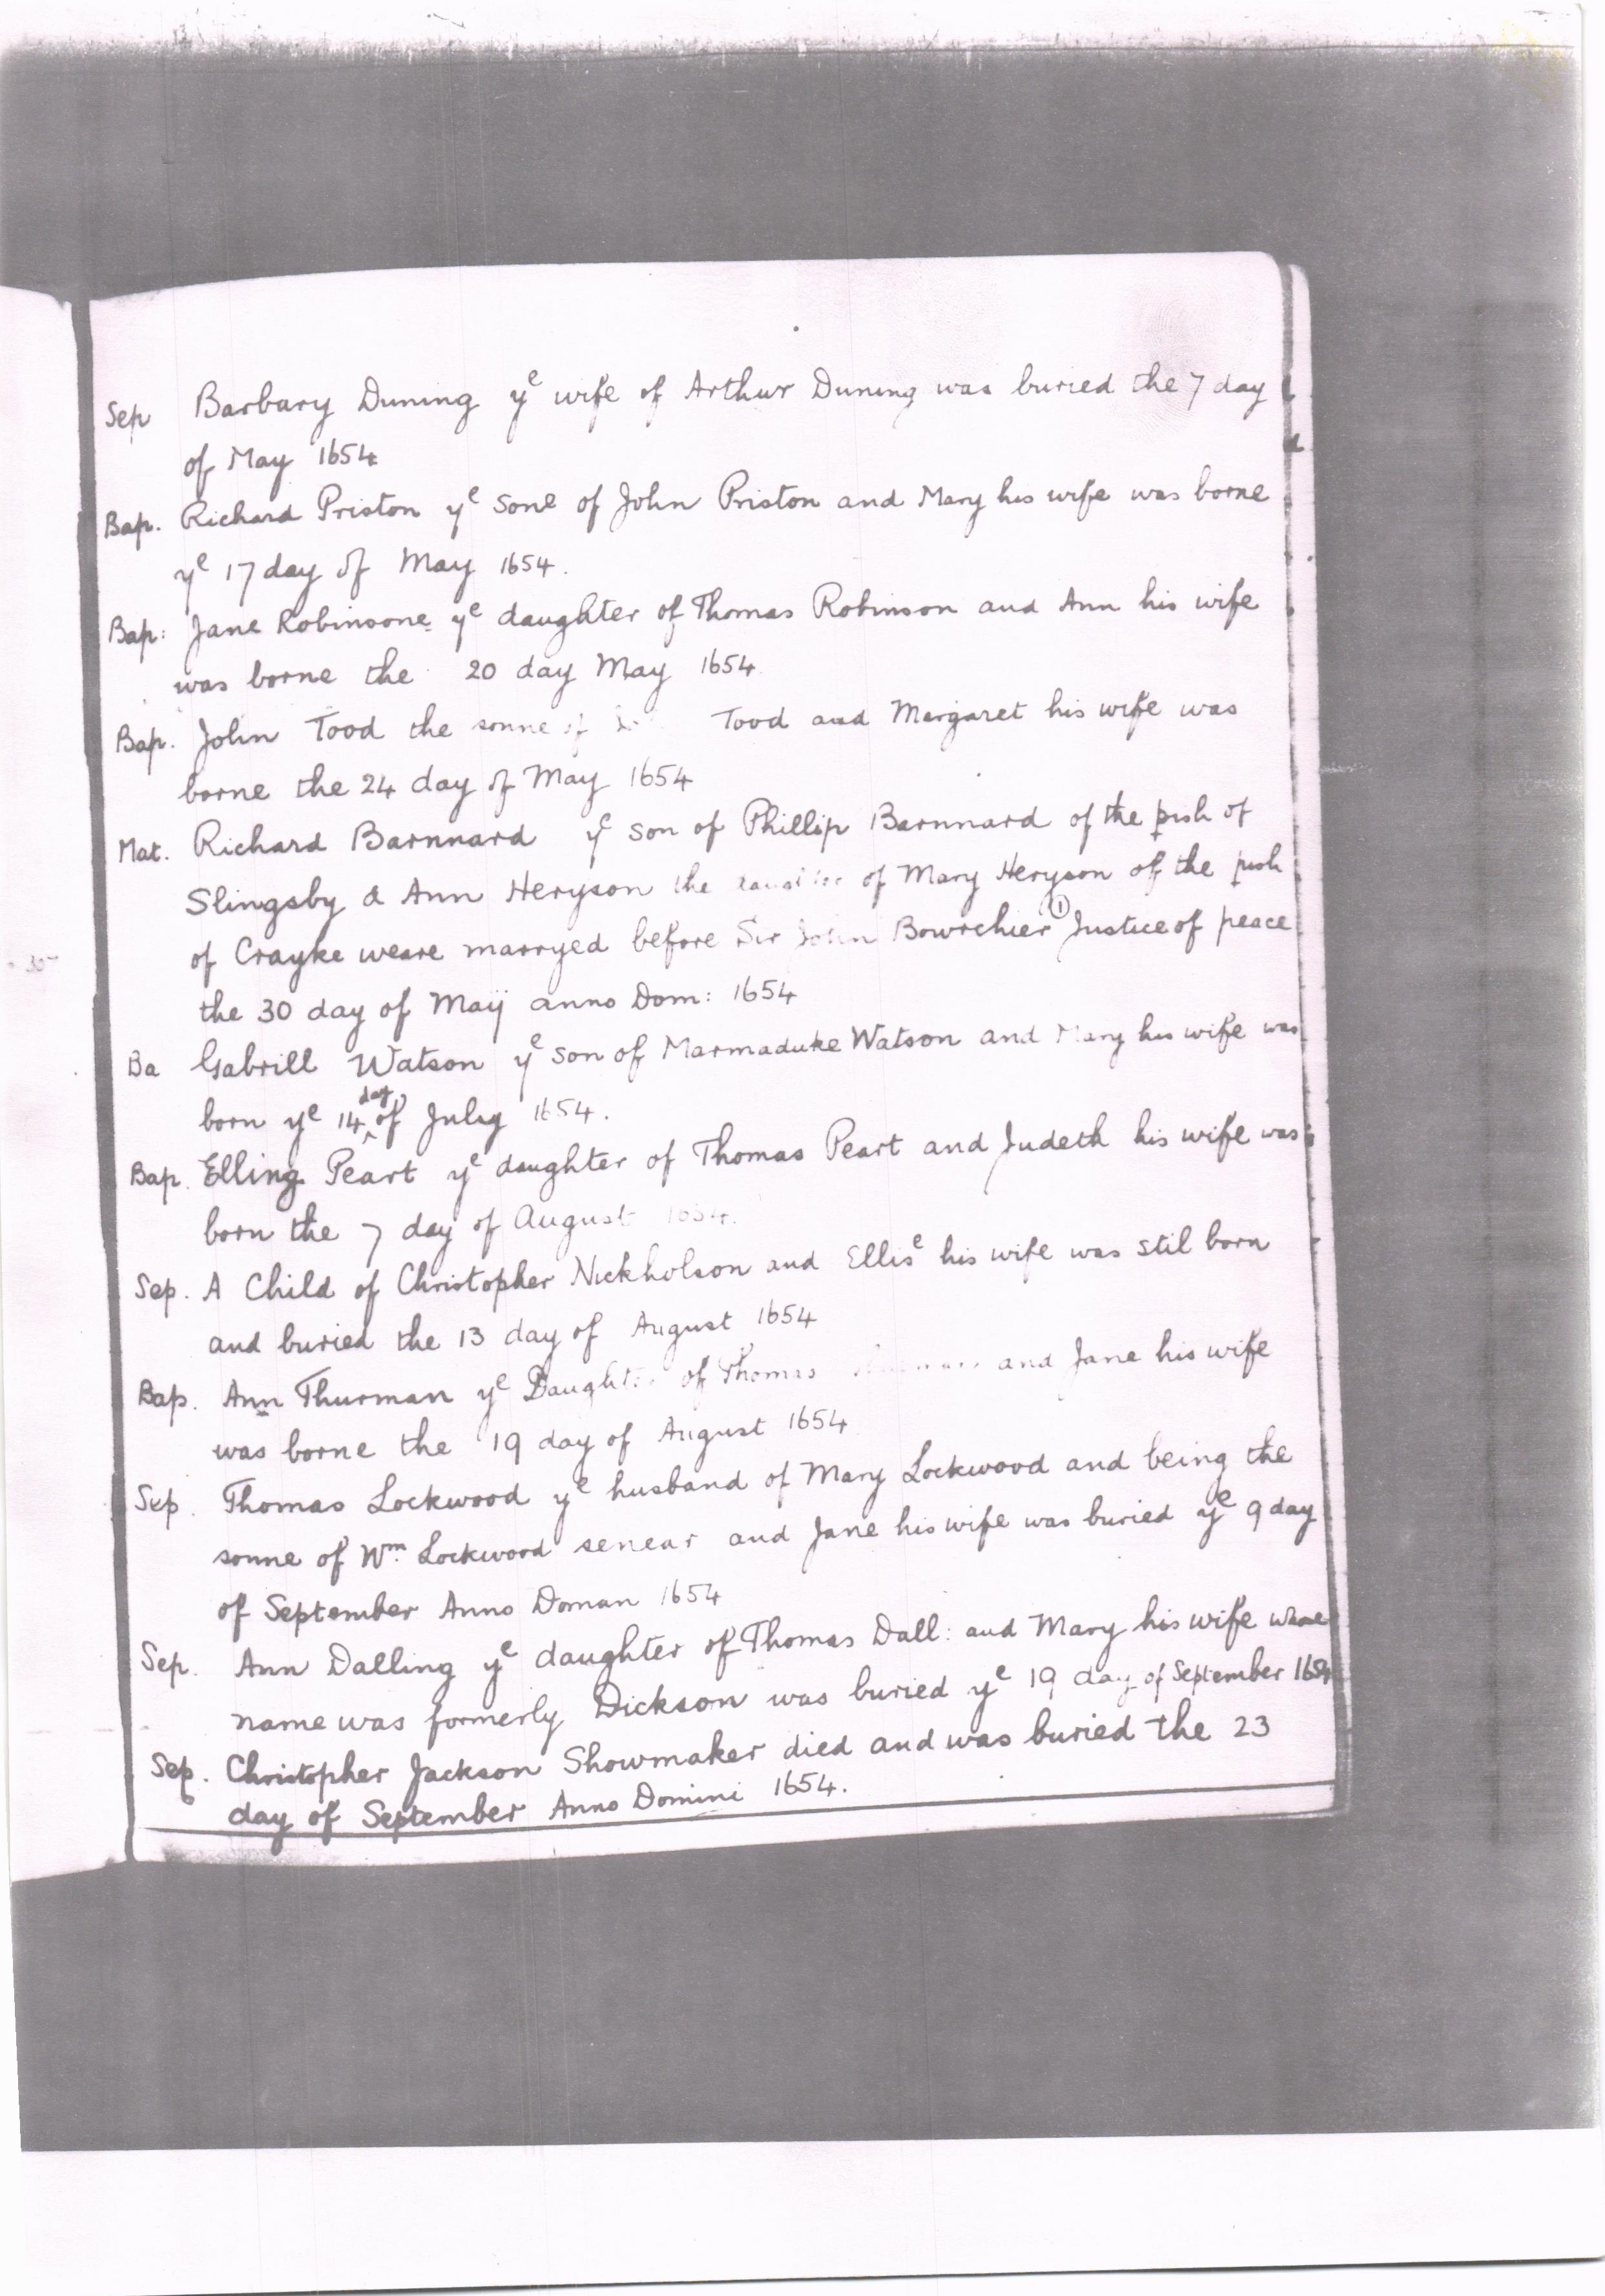 Sep Barbary Duning yᵉ wife of Arthur Duning was buried the 7 day
of May 1654
Bap. Richard Priston yᵉ sone of John Priston and Mary his wife was borne
yᵉ 17 day of May 1654.
Bap: Jane Robinsone yᵉ daughter of Thomas Robinson and Ann his wife
was borne the 20 day May 1654
Bap. John Tood the sonne of Tood and Margaret his wife was
borne the 24 day of May 1654
Mat. Richard Barnnard yᵉ son of Phillip Barnnard of the pish of
Slingsby & Ann Heryson the daughter of Mary Heryson of the pish
of Crayke weare marryed before Sir John Bowrchier ① Justice of peace
the 30 day of Maij anno Dom: 1654
Ba Gabrill Watson yᵉ son of Marmaduke Watson and Mary his wife was
born yᵉ 14 day of July 1654.
Bap. Elling Peart yᵉ daughter of Thomas Peart and Judeth his wife was
born the 7 day of August 1654.
Sep. A Child of Christopher Nickholson and Ellisᵉ his wife was stil born
and buried the 13 day of August 1654
Bap. Ann Thurman yᵉ Daughter of Thomas and Jane his wife
was borne the 19 day of August 1654
Sep. Thomas Lockwood yᵉ husband of Mary Lockwood and being the
sonne of Wᵐ Lockwood senear and Jane his wife was buried yᵉ 9 day
of September Anno Doman 1654
Sep. Ann Dalling yᵉ daughter of Thomas Dall: and Mary his wife whose
name was formerly Dickson was buried yᵉ 19 day of September 1654
Sep. Christopher Jackson Showmaker died and was buried the 23
day of September Anno Domini 1654.